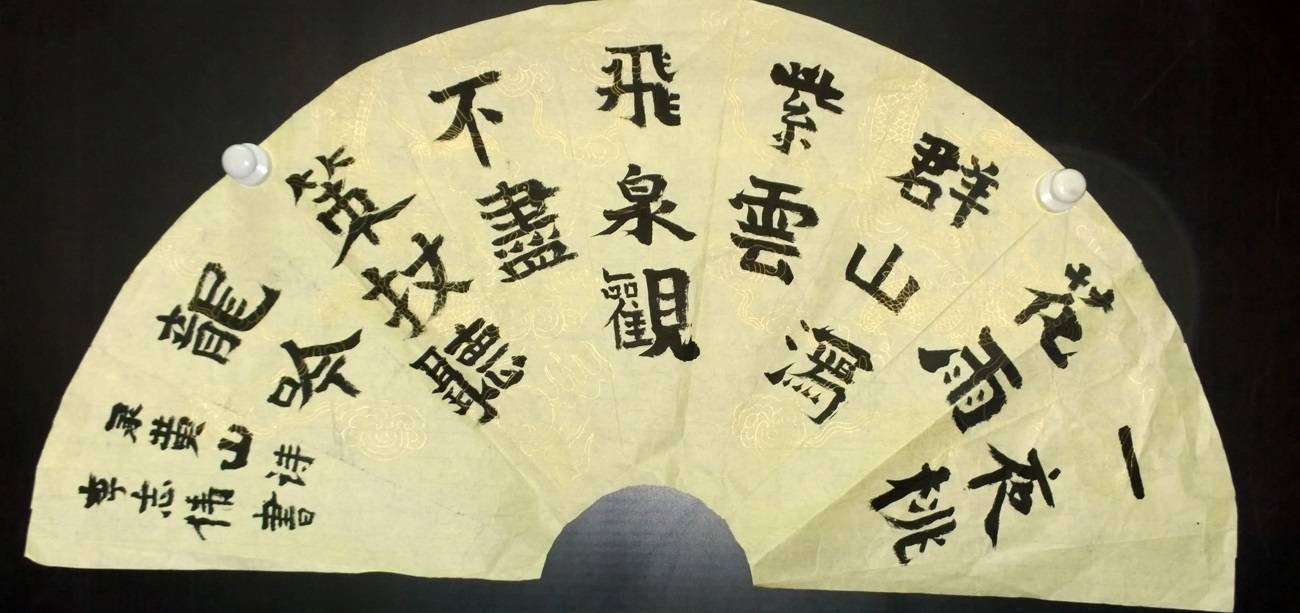 一夜桃
花雨
群山瀉
紫雲
飛泉觀
不盡
策杖聽
龍吟
录黄山诗
李志偉書